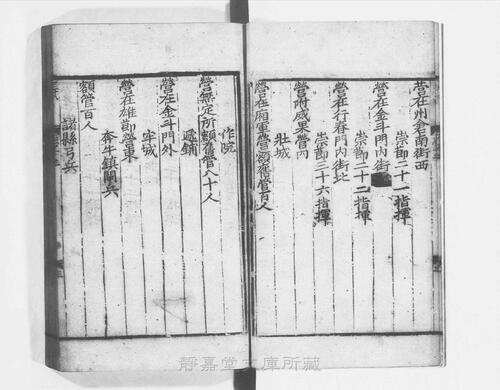 營在州倉南街西
崇節二十一指揮
營在金斗門內街
崇節二十二指揮
營在行春門內街北
崇節三十六指揮
營附威果營內
壯城
營在廂軍營額舊管百人
作院
營無定所額舊管八十人
遞鋪
營在金斗門外
牢城
營在雄節營東
奔牛鎮閘兵
額管百人
諸縣弓兵
靜嘉堂文庫所藏